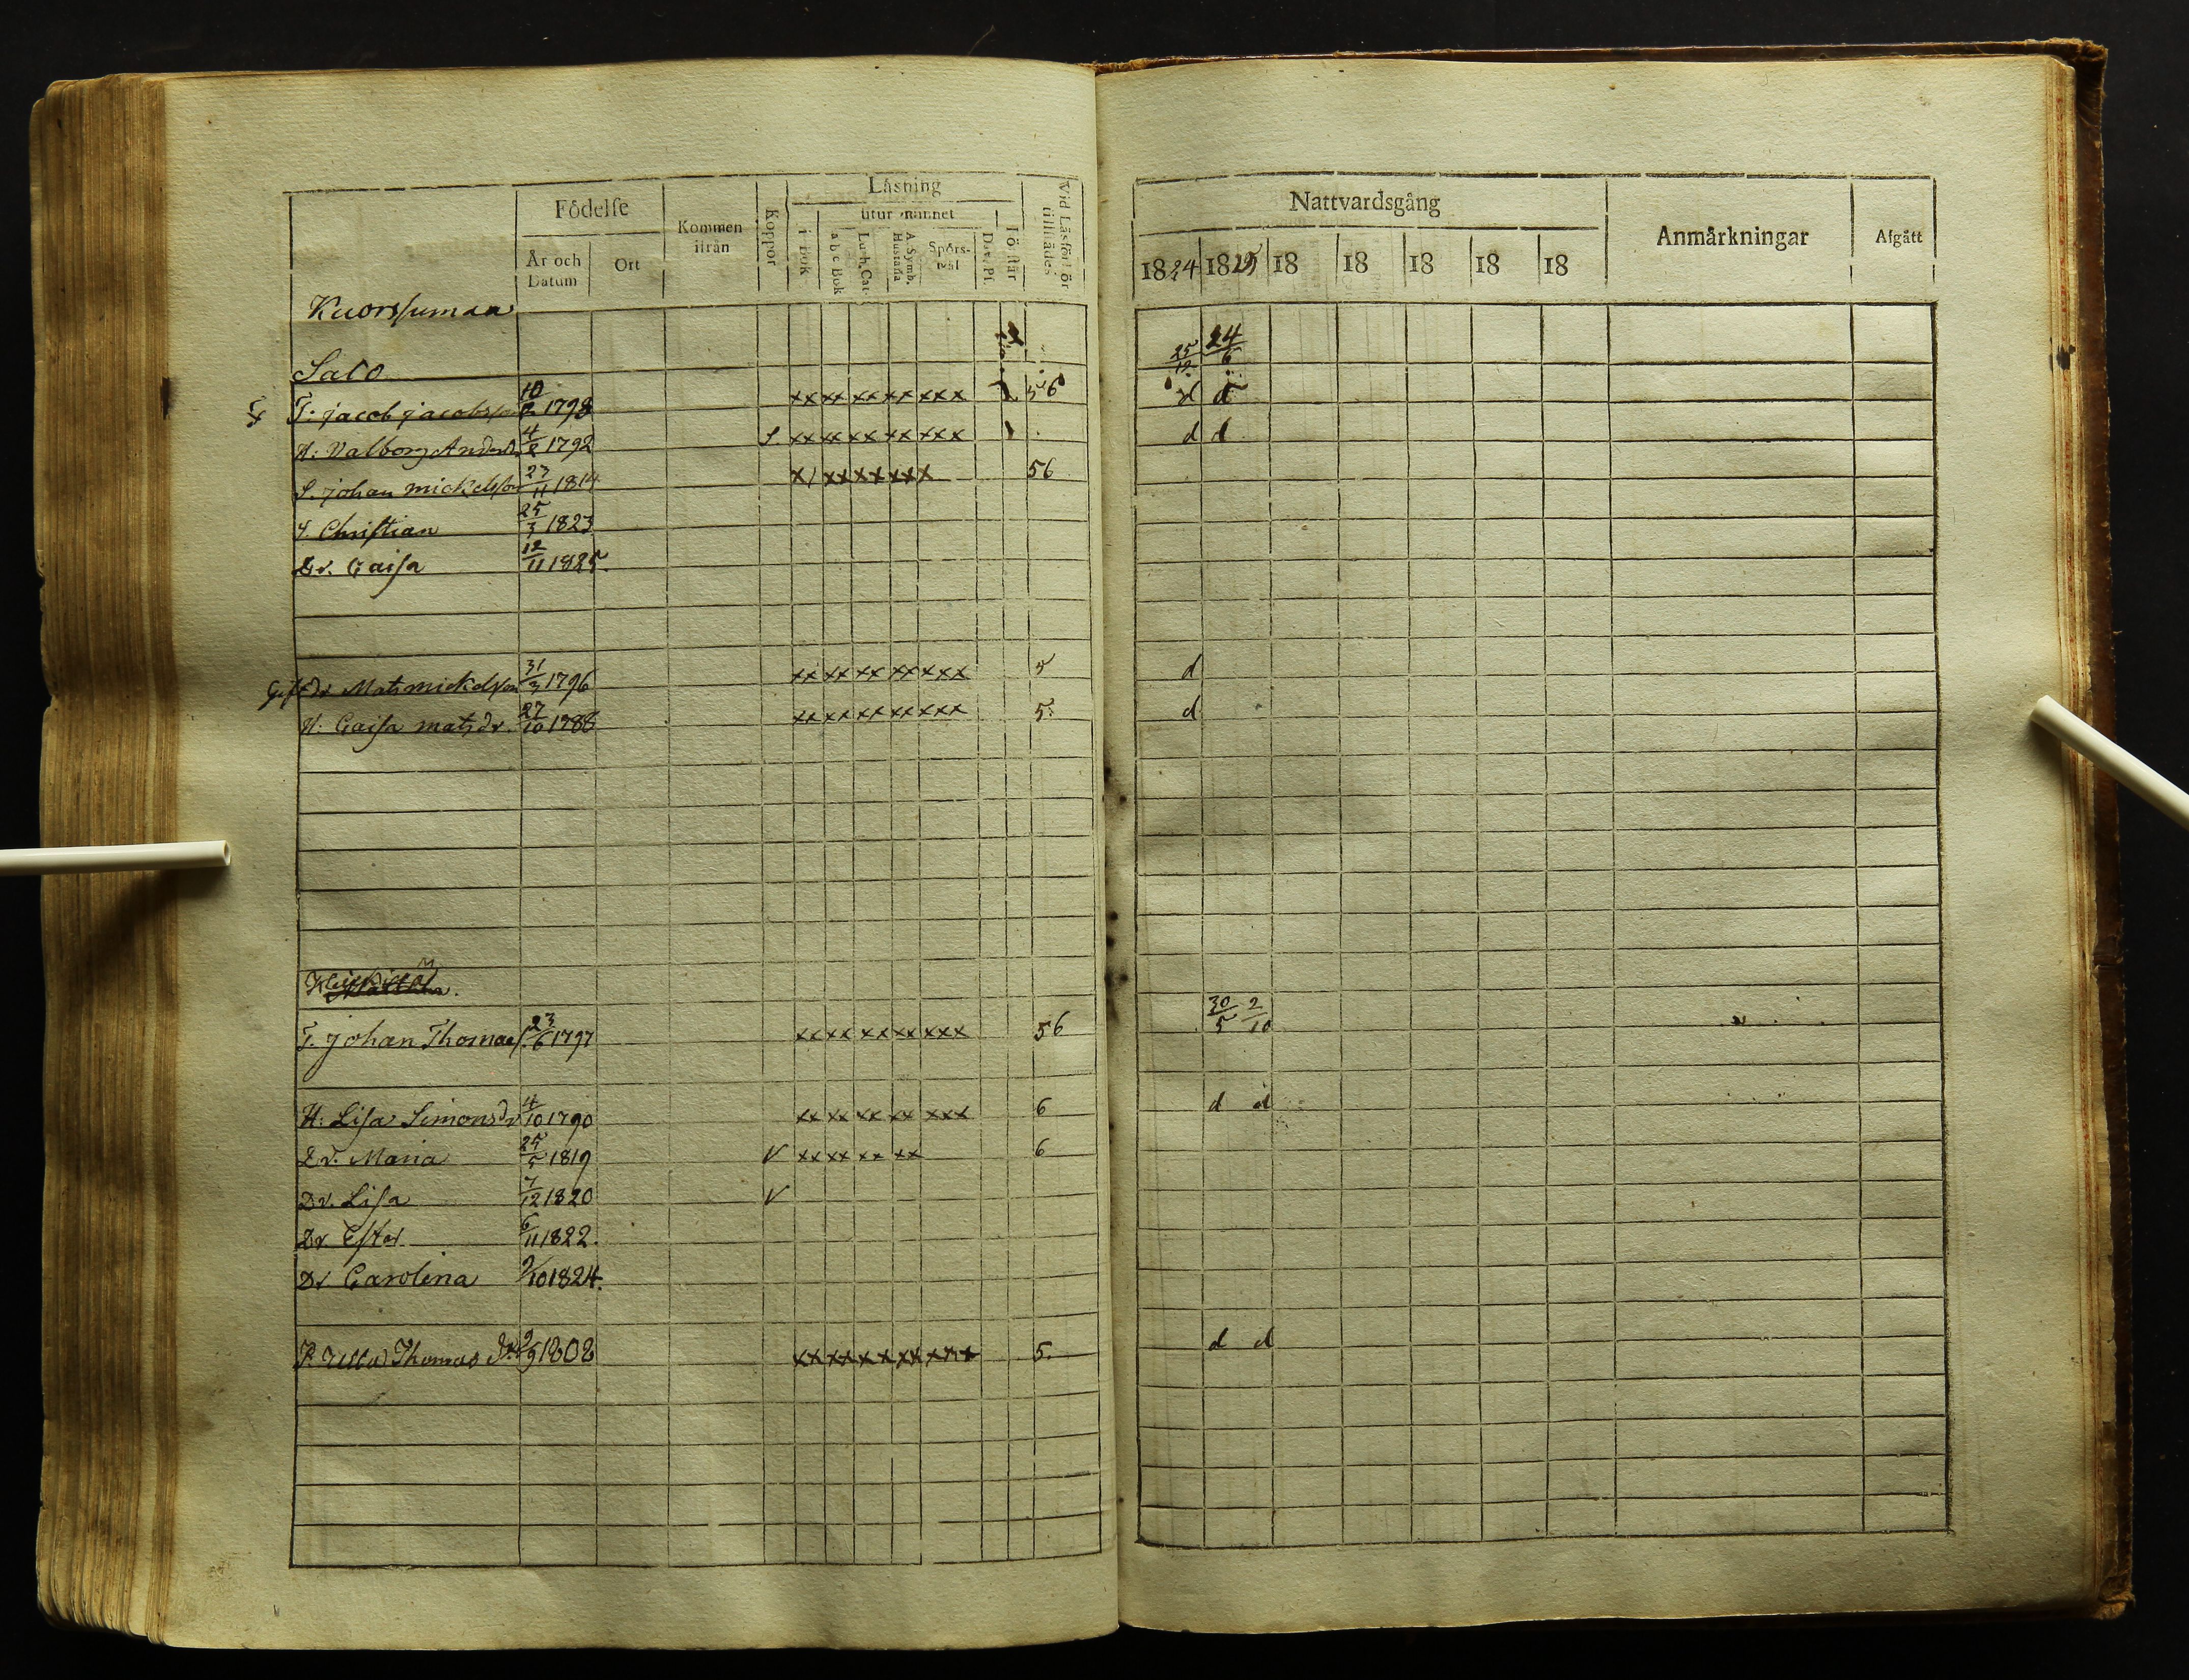 Födelse
Kommen ifrån
Koppor
Läsning
utur minnet
i bok
a b c Bok
Luth. Cat.
A. Symb. Hustafla
Spörsmål
Dav. Ps.
Förstår
Vid Läsförhör tillstädes
År och Datum
Ort
Nattvardsgång
Anmärkningar
Afgått
1824 1825 18 18 18 18 18
Kuorssuman
Salo
25/12 24/6
T. jacob jacobsson 10/2 1798 xx xx xx xx xxx 56 d d
H: Valborg Andersd. 4/2 1792 S xx xx xx xx xxx d d
S. johan mickelsson 23/11 1814 x/ xx xx xxx 56
S. Christian 25/3 1823
Dr. Caisa 12/11 1825.
Mats mickelsson 31/3 1796 xx xx xx xx xxx 5 d
H: Caisa matsdr. 27/10 1788 xx xx xx xx xxx 5. d
30/5 2/10
T. johan Thomas. 23/6 1797 xx xx xx xx xxx 56
H: Lisa Simonsdr 4/10 1790 xx xx xx xx xxx 6 d d
Dr. Maria 25/5 1819 V xx xx xx xx 6
Dr. Lisa 7/12 1820 V
Dr Ester 6/11 1822.
Dr Carolina 9/10 1824.
Thomas Dr 2/9 1802 xx xx xx xx xxx 5. d d